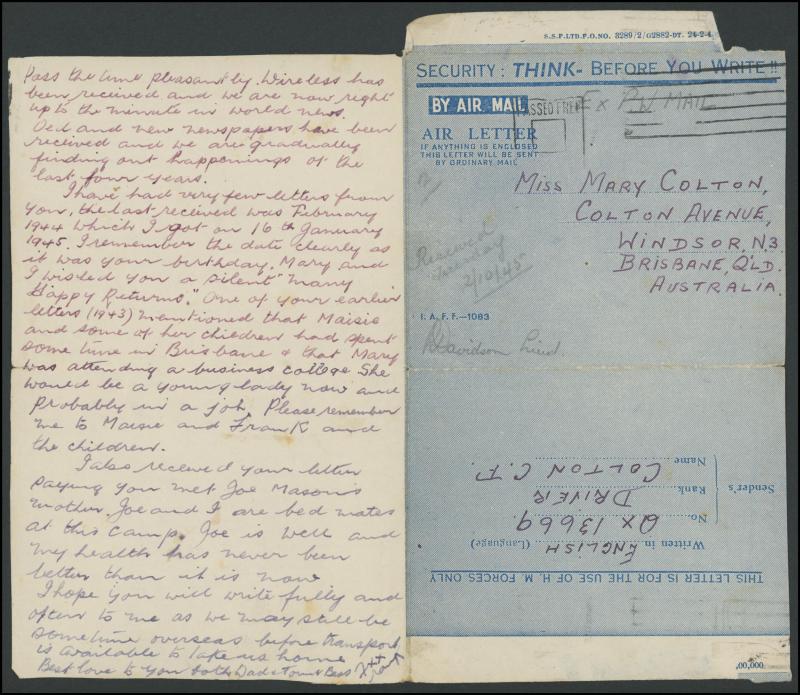 Pass the time pleasantly. Wireless has
been received and we are now right
up to the minute in world news.
Old and new newspapers have been
received and we are gradually
finding out happenings of the
last four years.
I have had very few letters from
you, the last received was February
1944 which I got on 16th January
1945. I remember the date clearly as
it was your birthday, Mary and
I wished you a silent "many
Happy Returns." One of your earlier
letters (1943) mentioned that Maisie
and some of her children had spent
some time in Brisbane & that Mary
was attending a business college She
would be a young lady now and
probably in a job. Please remember
me to Maisie and Frank and
the children.
I also received your letter
saying you met Joe Mason's
mother. Joe and I are bed mates
at this camp. Joe is well and
my health has never been
better than it is now
I hope you will write fully and
often to me as we may still be
sometime overseas before transport
is available to take us home
Best love to you both, Dad & Tom & Bess
S.S.P. LTD. P.O. NO. 3289/2/G2882-DT. 24-2-4
SECURITY: THINK- BEFORE YOU WRITE!!
BY AIR MAIL
PASSED FREE
EX P.W MAIL
AIR LETTER
IF ANYTHING IS ENCLOSED
THIS LETTER WILL BE SENT
BY ORDINARY MAIL
MISS MARY COLTON,
COLTON AVENUE,
WINDSOR, N3.
BRISBANE, Q'LD.
AUSTRALIA.
Received
Tuesday
2/10/45
I. A. F. F.—1083
Davidson
THIS LETTER IS FOR THE USE OF H. M. FORCES ONLY
Written in ENGLISH (Language)
Sender's
No. QX 13669.
Rank DRIVER
Name COLTON C.T.
,00,000